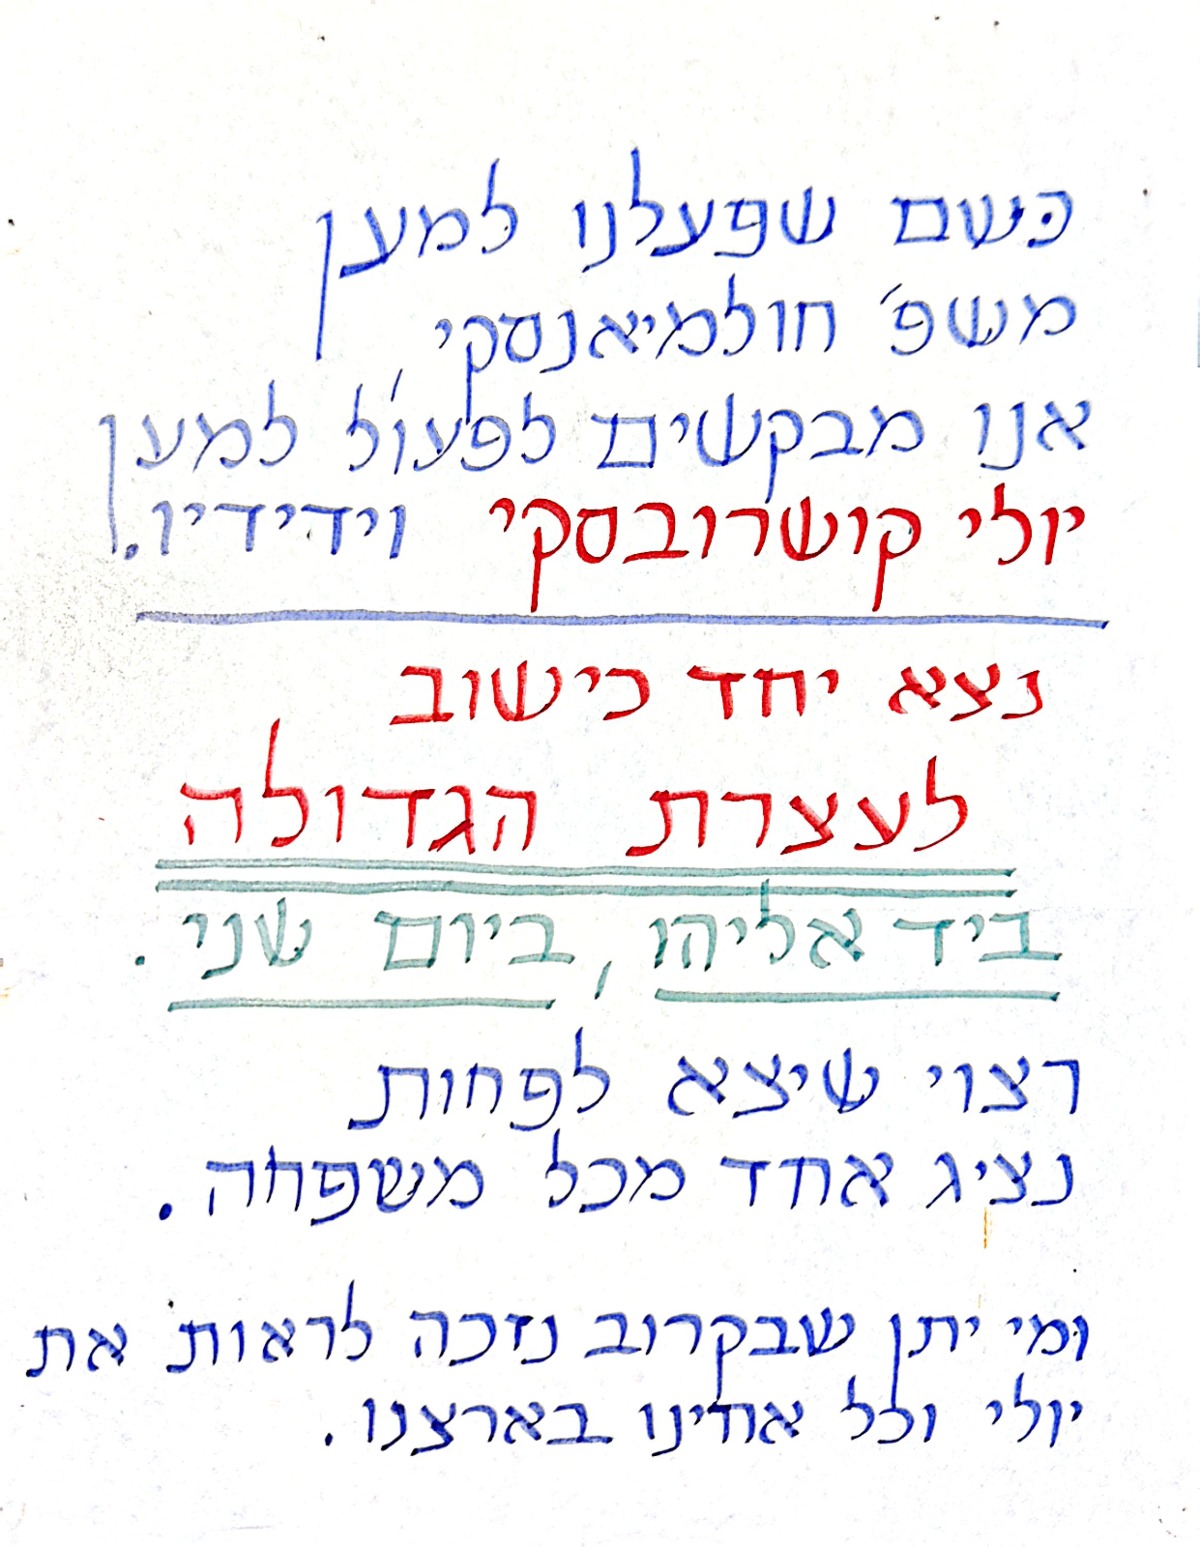 כשם שפעלנו למען
משפ' חולמיאנסקי
אנו מבקשים לפעול למען
יולי קושרובסקי וידידיו.
נצא יחד כישוב
לעצרת הגדולה
ביד אליהו, ביום שני.
רצוי שיצא לפחות
נציג אחד מכל משפחה.
ומי יתן שבקרוב נזכה לראות את
יולי וכל אחינו בארצנו.